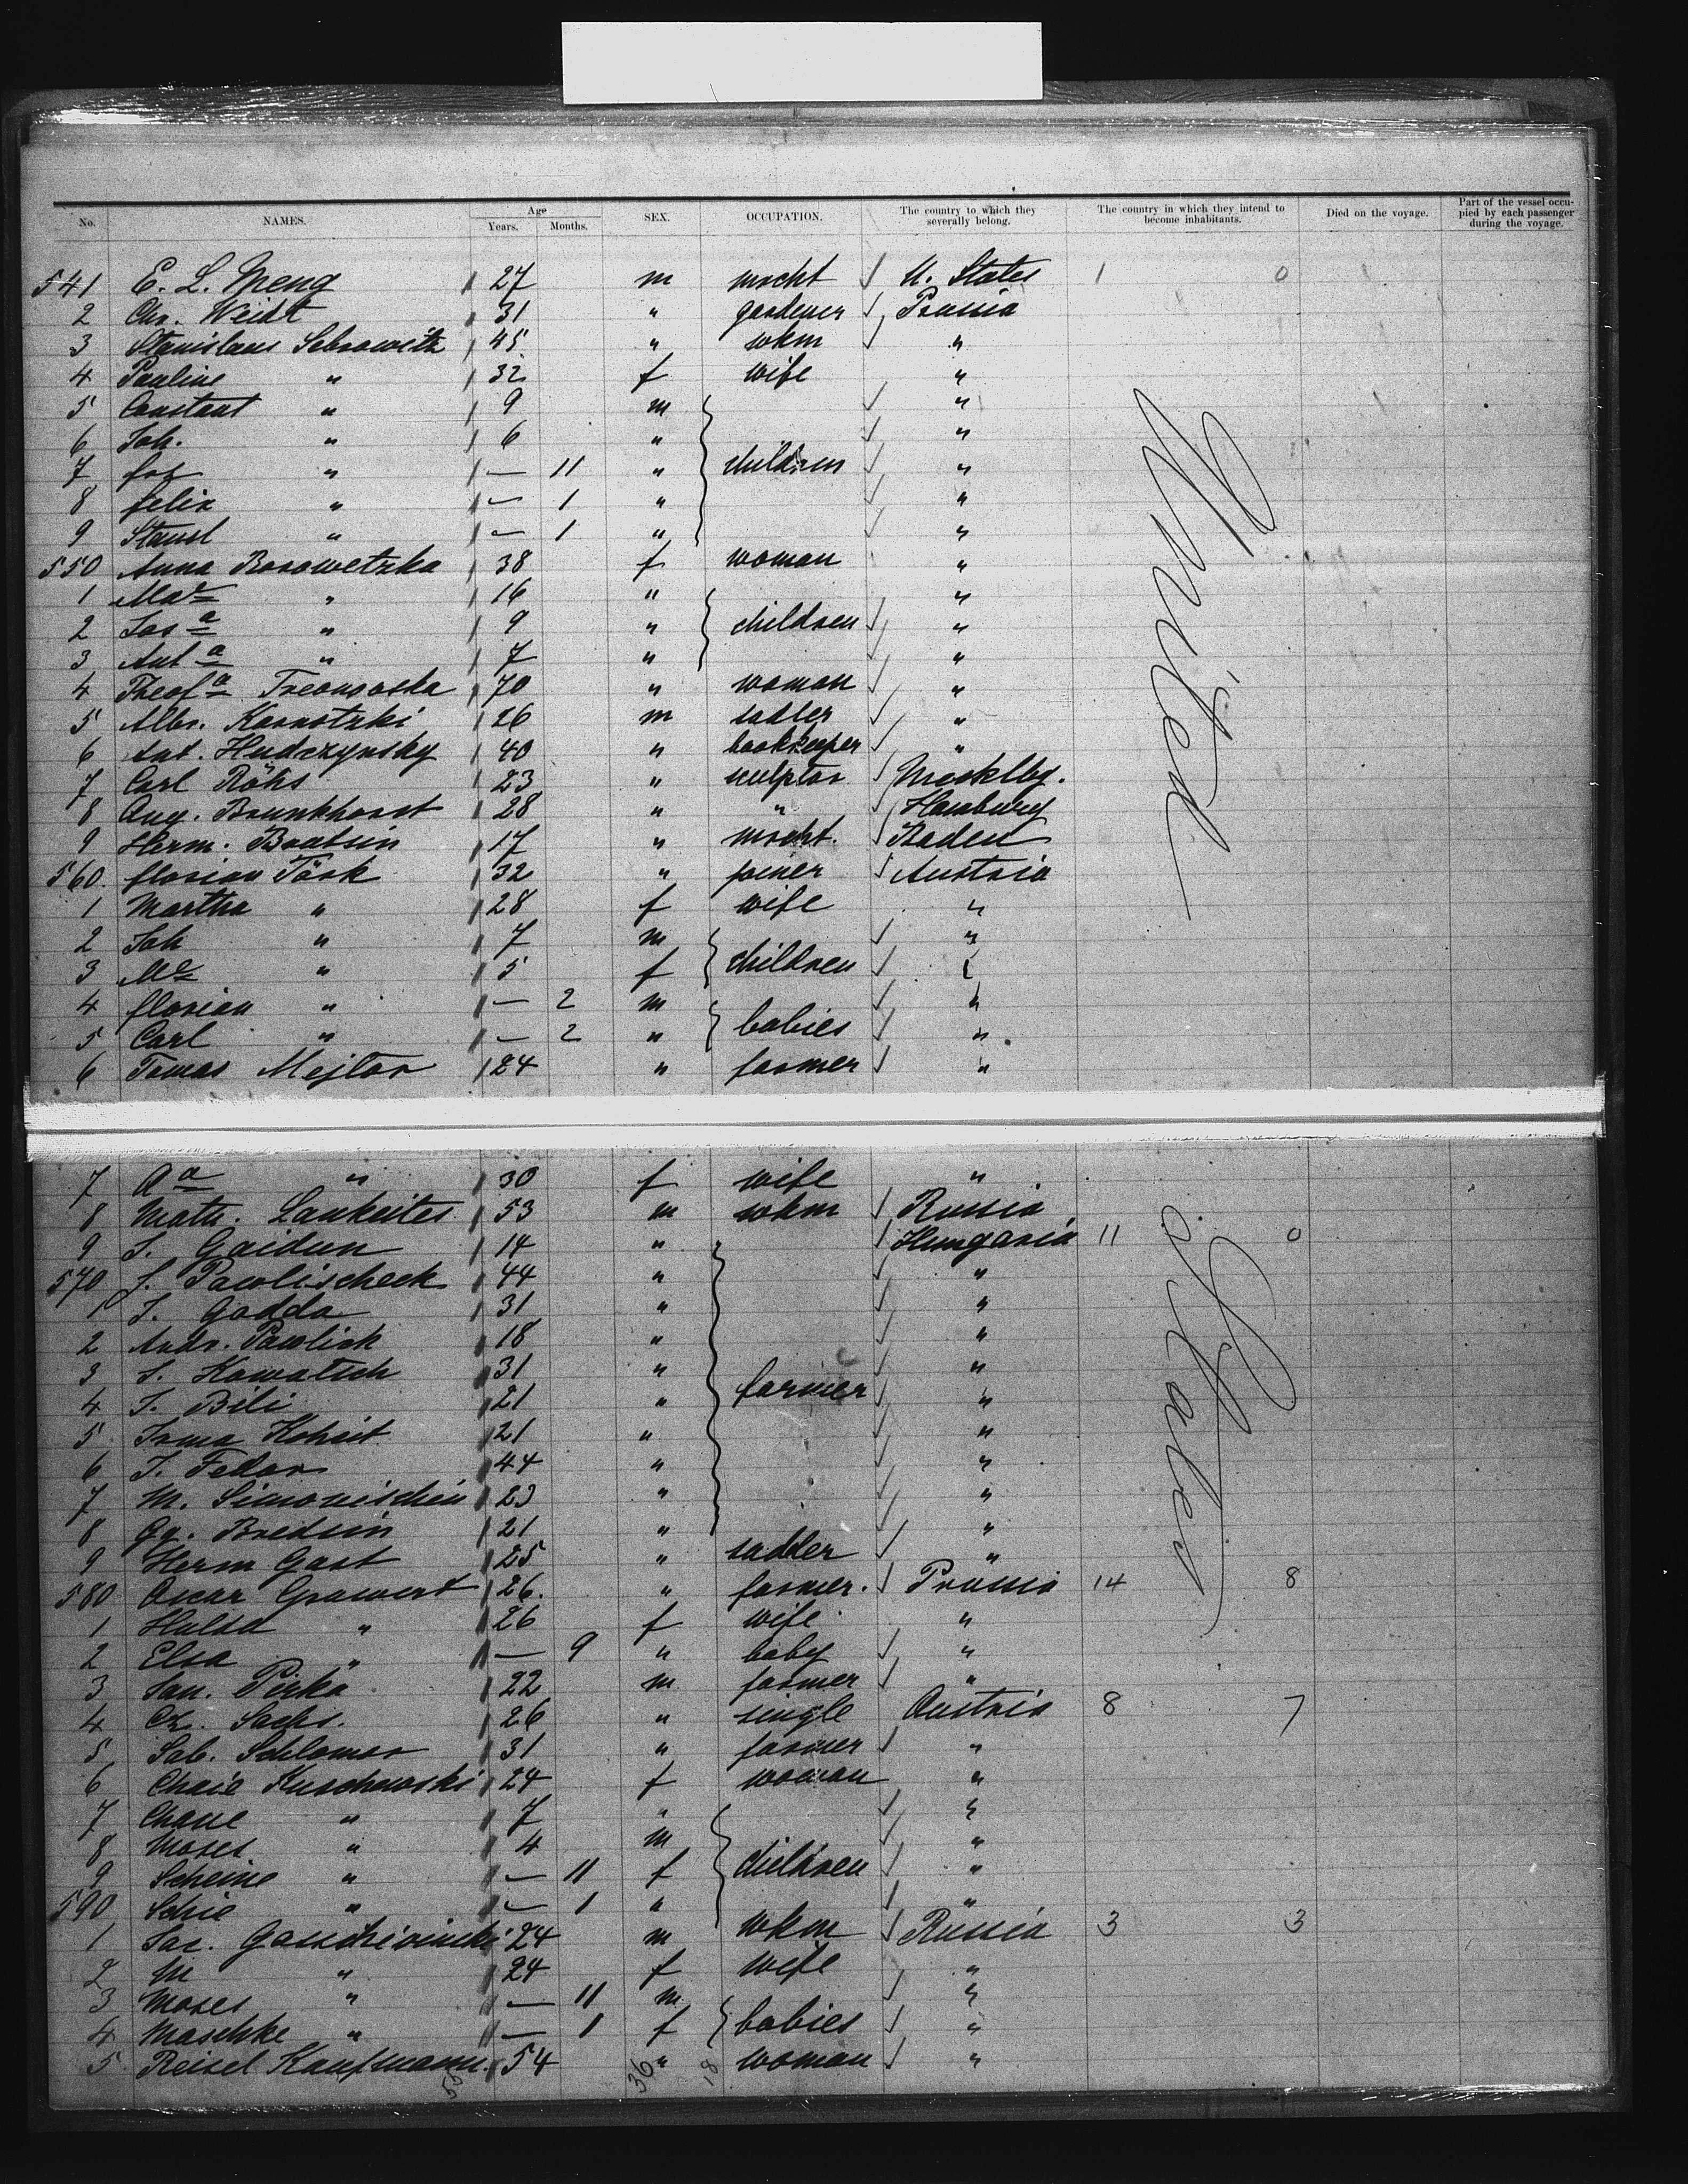 No. NAMES. Age Years. Months. SEX. OCCUPATION. The country to which they severally belong. The country in which they intend to become inhabitants. Died on the voyage. Part of the vessel occupied by each passenger during the voyage.
541 E. L. Meng 27 m mscht U. States 1 0
2 Chr. Weidt 31 " gardener Prussia
3 Stanislaus Sebrowitz 45 " wkm "
4 Pauline " 32 f wife "
5 Constant " 9 m "
6 Joh. " 6 " "
7 " — 11 " children "
8 felix " — 1 " "
9 Stanisl " — 1 " "
550 Anna Borowetzka 38 f woman "
1 " 16 " "
2 Jos a " 9 " children "
3 Ant a " 7 " "
4 Theof a 70 " woman "
5 Albr. Karnotzki 26 m sadler "
6 Ant. Hudczynsky 40 " bookkeeper "
7 Carl Röhs 23 " sculptor Mecklbg.
8 Aug. Brunkhorst 28 " " Hamburg
9 Herm. 17 " mscht. Baden
560. florian Törk 32 " joiner Austria
1 Martha " 28 f wife "
2 Joh " 7 m "
3 " 5 f children "
4 florian " — 2 m "
5 Carl " — 2 " babies "
6 Tomas Mejtar 24 " farmer "
United
7 A a " 30 f wife "
8 Math. Laukeites 53 m wkm Russia
9 J. Gaidun 14 " Hungaria 11 0
570 J. Pawlischeck 44 " "
1 J. Godda 31 " "
2 Andr. Pawlick 18 " "
3 J. Kowatsch 31 " "
4 J. Bili 21 " farmer "
5 21 " "
6 J. Fedor 44 " "
7 M. Simonischin 23 " "
8 Gg. Bredsin 21 " "
9 Herm Gast 25 " sadder "
580 Oscar Grawert 26. " farmer. Prussia 14 8
1 Hulda " 26 f wife "
2 Elsa " — 9 " baby "
3 Jan. Pirka 22 m farmer "
4 Ch. Sachs. 26 " single Austria 8 7
5 Sal. Schlomor 31 " farmer "
6 Chaie Kuschewski 24 f woman "
7 Chane " 7 " "
8 Moses " 4 m "
9 Scheine " — 11 f children "
590 Schie " — 1 " "
1 24 m wkm Russia 3 3
2 M " 24 f wife "
3 Moses " — 11 m "
4 Maschke " — 1 f babies "
5 Reisel Kaufmann. 54 " woman "
States
36 18